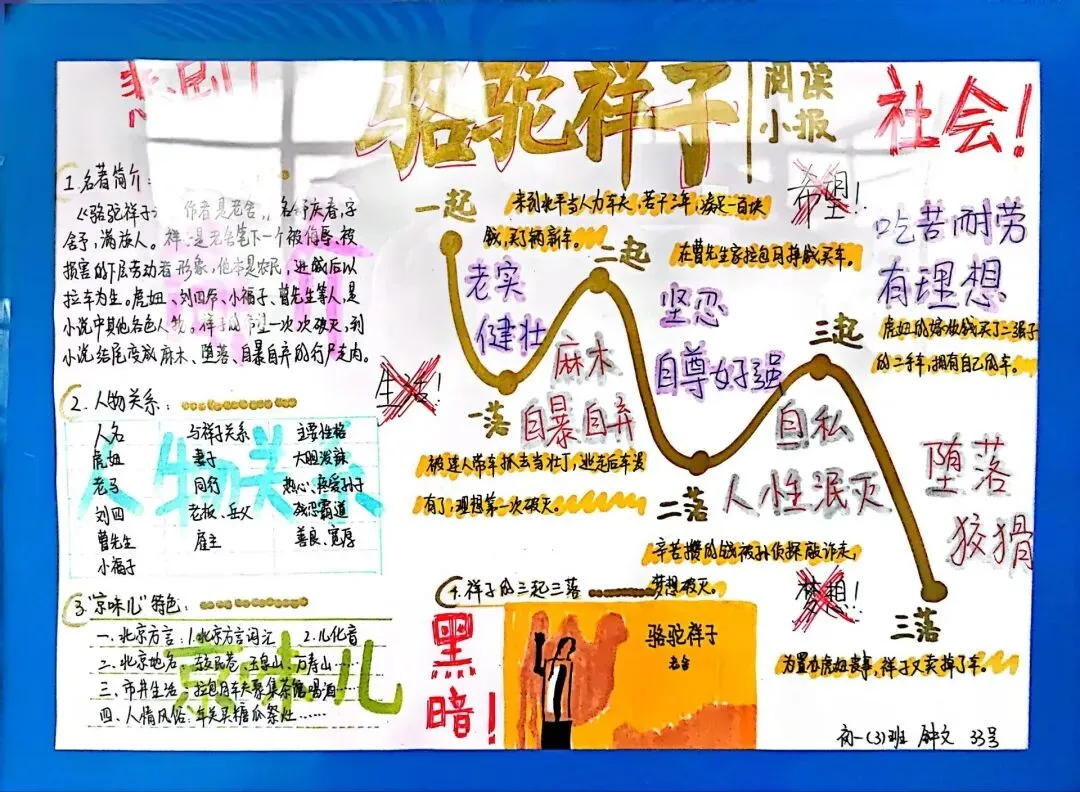 骆驼祥子
阅读
小报
社会！
1.名著简介：
《骆驼祥子》作者是老舍，名舒庆春，字
舍予，满族人。祥子是老舍笔下一个被侮辱、被
损害的下层劳动者形象，他本是农民，进城后以
拉车为生。虎妞、刘四爷、小福子、曹先生等人，是
小说中其他各色人物。祥子的希望一次次破灭，到
小说结尾变成麻木、堕落、自暴自弃的行尸走肉。
2.人物关系：
人物关系
人名 与祥子关系 主要性格
虎妞 妻子 大胆泼辣
老马 同行 热心、疼爱孙子
刘四 老板、岳父 残忍霸道
曹先生 雇主 善良、宽厚
小福子
3.“京味儿”特色：
京味儿
一、北京方言：1.北京方言词汇 2.儿化音
二、北京地名：玉泉山、万寿山……
三、市井生活：拉包月车夫聚集茶馆喝酒……
四、人情风俗：年关买糖瓜祭灶……
4.祥子的三起三落
一起
来到北平当人力车夫，苦干三年，凑足一百块
钱，买了辆新车。
希望！
老实
健壮
二起
在曹先生家拉包月挣钱买车。
吃苦耐劳
有理想
坚忍
自尊好强
三起
虎妞的嫁妆钱买了二强子
的二手车，拥有自己的车。
生活！
一落
麻木
自暴自弃
被逮人带车抓去当壮丁，逃走后车没
有了，理想第一次破灭。
自私
人性泯灭
二落
辛苦攒的钱被孙侦探敲诈走，
梦想破灭。
堕落
狡猾
梦想！
三落
为置办虎妞丧事，祥子又卖掉了车。
黑
暗！
骆驼祥子
老舍
初一(3)班 钟文 33号